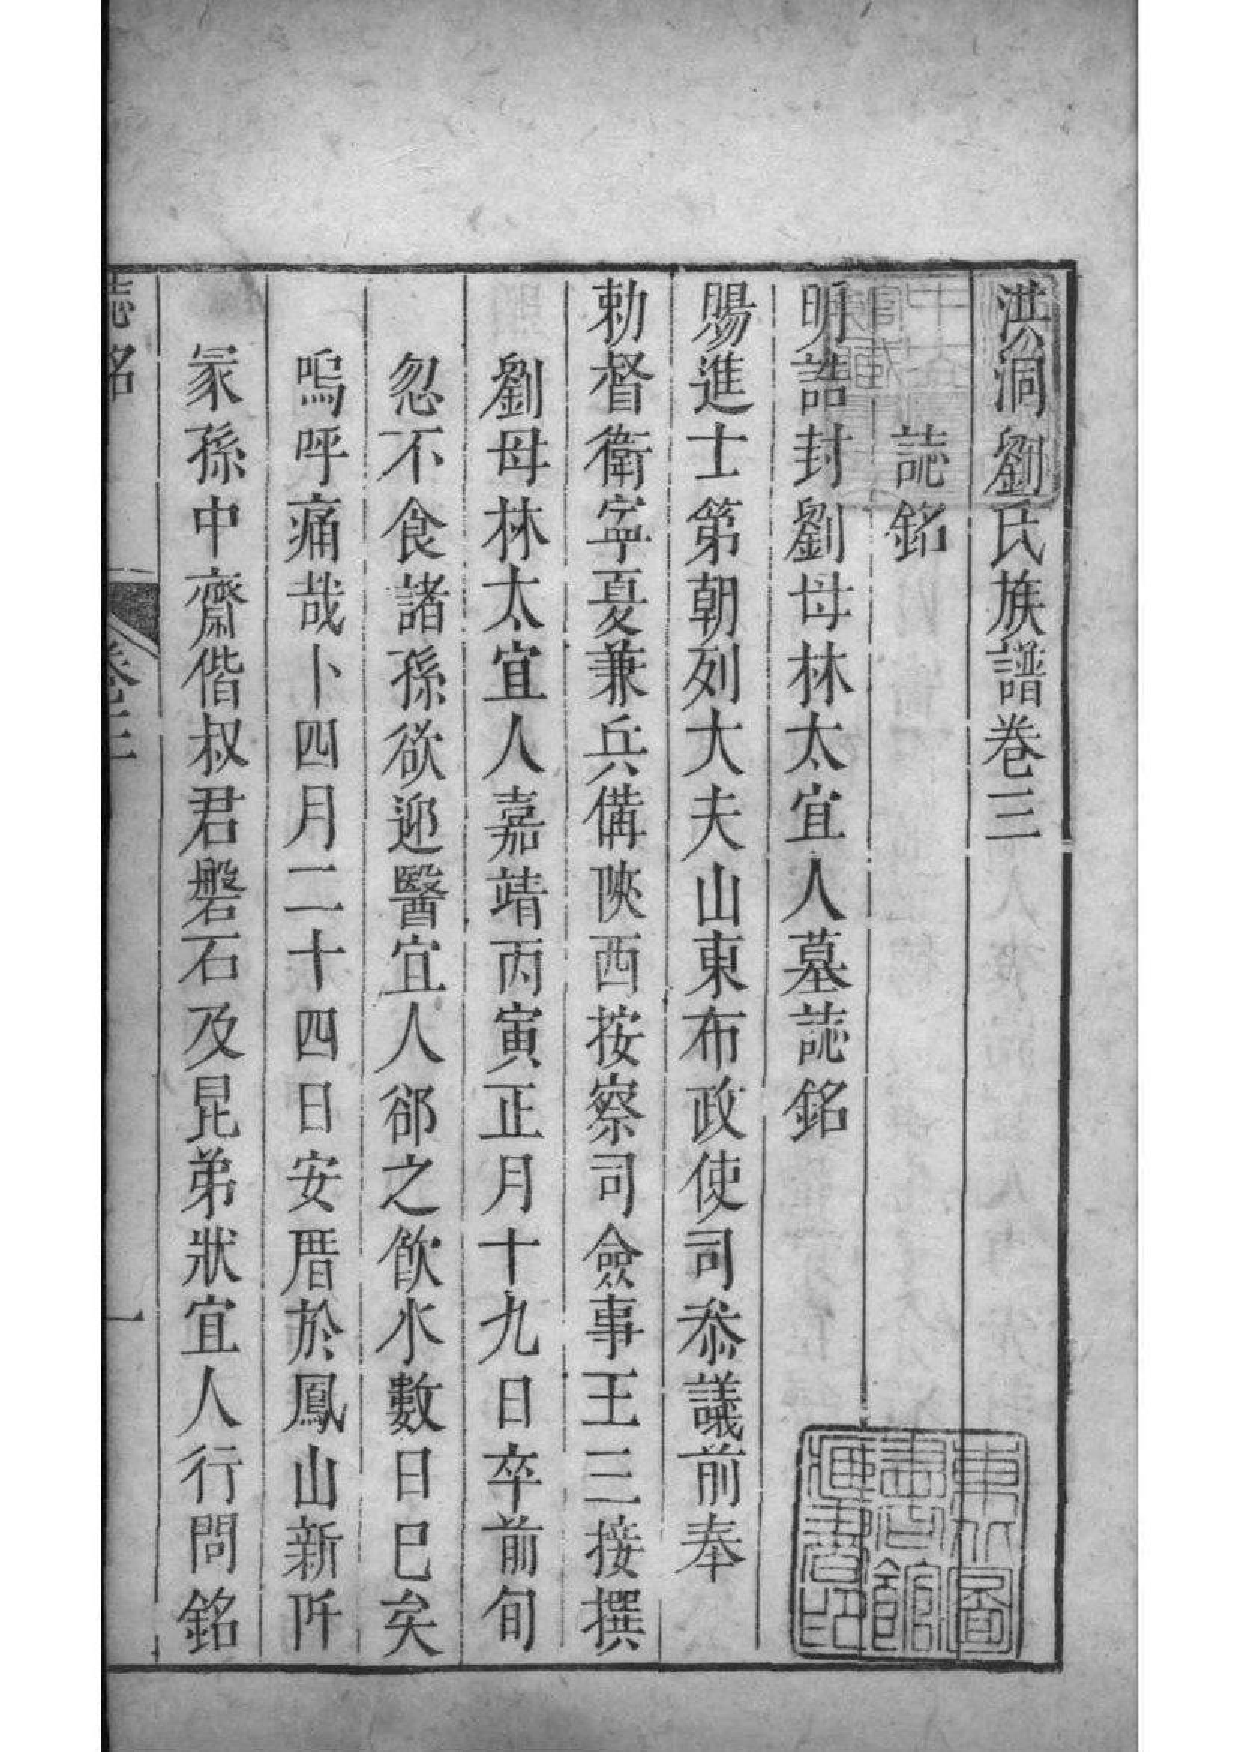 洪洞劉氏族譜卷三
誌銘
明誥封劉母林太宜人墓誌銘
賜進士第朝列大夫山東布政使司叅議前奉
勅督衛寧夏兼兵備陝西按察司僉事王三接撰
劉母林太宜人嘉靖丙寅正月十九日卒前旬
忽不食諸孫欲迎醫宜人郤之飮水數日巳矣
嗚呼痛哉卜四月二十四日安厝於鳳山新阡
冢孫中齋偕叔君磐石及昆弟狀宜人行問銘
誌銘
卷三
一
東北圖
書館
藏書印